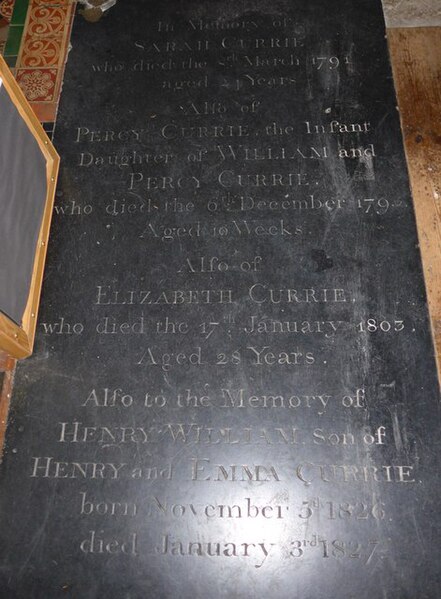 In Memory of
SARAH CURRIE
who died the March 1791
aged Years
Alſo of
PERCY CURRIE, the Infant
Daughter of WILLIAM and
PERCY CURRIE.
who died the 6th December
Aged 10 Weeks.
Alſo of
ELIZABETH CURRIE.
who died the 17th January 1803.
Aged 28 Years.
Alſo to the Memory of
HENRY WILLIAM Son of
HENRY and EMMA CURRIE.
born November 3d 1826.
died January 3rd 1827.